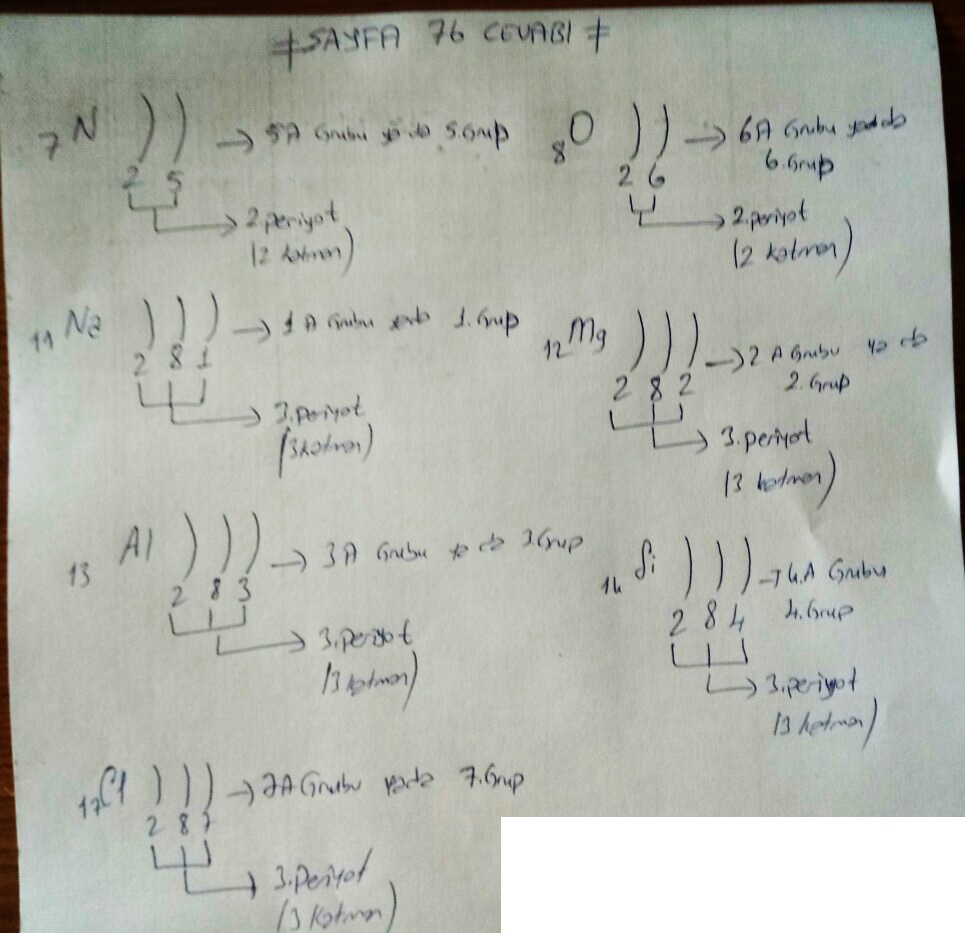 ≠ SAYFA 76 CEVABI ≠
7 N ) ) → 5A Grubu ya da 5.Grup
2 5
2.periyot
(2 katman)
8 O ) ) → 6A Grubu yada
6.Grup
2 6
2.periyot
(2 katman)
11 Na ) ) ) → 1A Grubu yada 1.Grup
2 8 1
3.periyot
(3 katman)
12 Mg ) ) ) → 2 A Grubu ya da
2.Grup
2 8 2
3.periyot
(3 katman)
13 Al ) ) ) → 3A Grubu ya da 3.Grup
2 8 3
3.periyot
(3 katman)
14 Si ) ) ) → 4.A Grubu
4.Grup
2 8 4
3.periyot
(3 katman)
17 Cl ) ) ) → 7A Grubu yada 7.Grup
2 8 7
3.Periyot
(3 Katman)